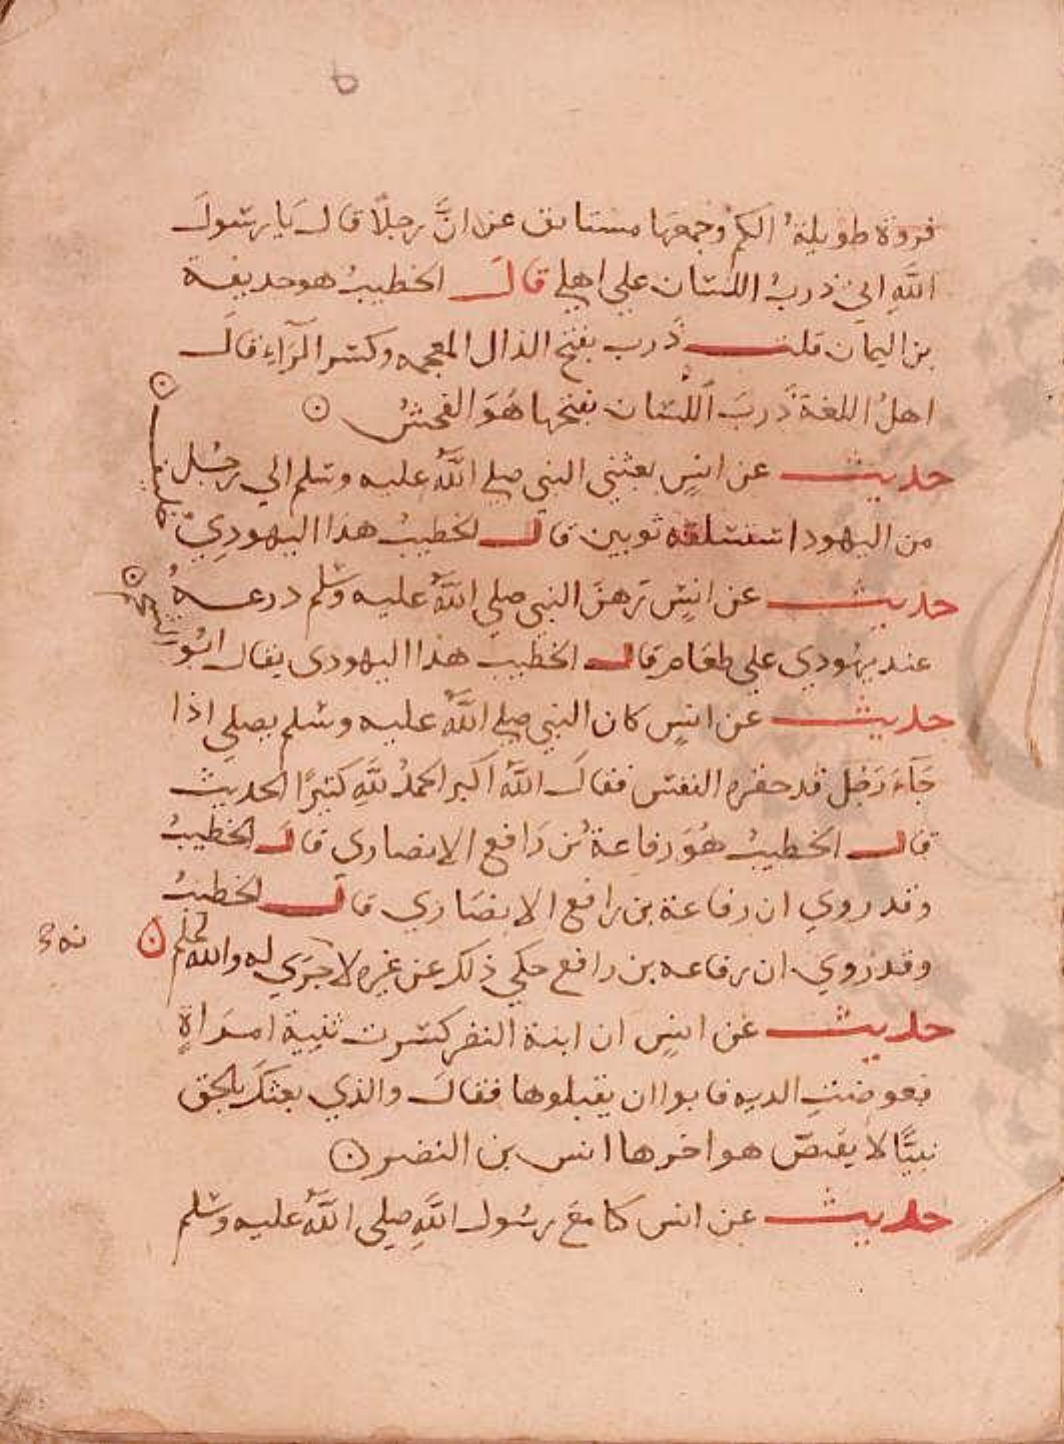 فروة طويلة الكم وجمعها مساتق عن انَّ رجلًا قالَ يا رسولَ
اللهِ اني ذرِبُ اللسان علي اهلي قالَ الخطيبُ هو حذيفة
بن اليمان قلت ذَرب بفتح الذال المعجمه وكسر الرَّاء قال
اهلُ اللغة ذَربَ اللسان بفتحها هُوَ الفحشُ
حديث عن انسٍ بعثني النبي صلي اللهُ عليه وسلم الي رجُل
من اليهود استسلفه ثوبين قال الخطيبُ هذا اليهوديّ
حديث عن انسٍ رَهنَ النبي صلي اللهُ عليه وسَلم درعهُ
عند يهُودي علي طعَام قال الخطيب هذا اليهودى يقال ابُو
الشحم
حديث عن انسٍ كان النبي صلي اللهُ عليه وسلم يصلي اذا
جَآءَ رَجُل قد حفزه النفسَ فقالَ اللهُ اكبر الحمدُ للهِ كثيرًا الحديث
قال الخطيبُ هُوَ رفاعة بن رَافع الانصاري قالَ الخطيبُ
وقد روي ان رفاعة بن رافع الانصَاري قال الخطيبُ
وقد رُوي ان رفاعه بن رافع حكي ذلك عن غيره لا جَرَي له والله اعلم
حديث عَن انسٍ ان ابنة النضر كسَرت ثنية امرَاةٍ
فعرضت الديه فابوا ان يقبلوها فقالَ والذي بعثكَ بالحق
نبيًّا لا يقتصّ هو اخوها انس بن النضر
حديث عن انس كنا معَ رسُول اللهِ صلي اللهُ عليه وسَلم